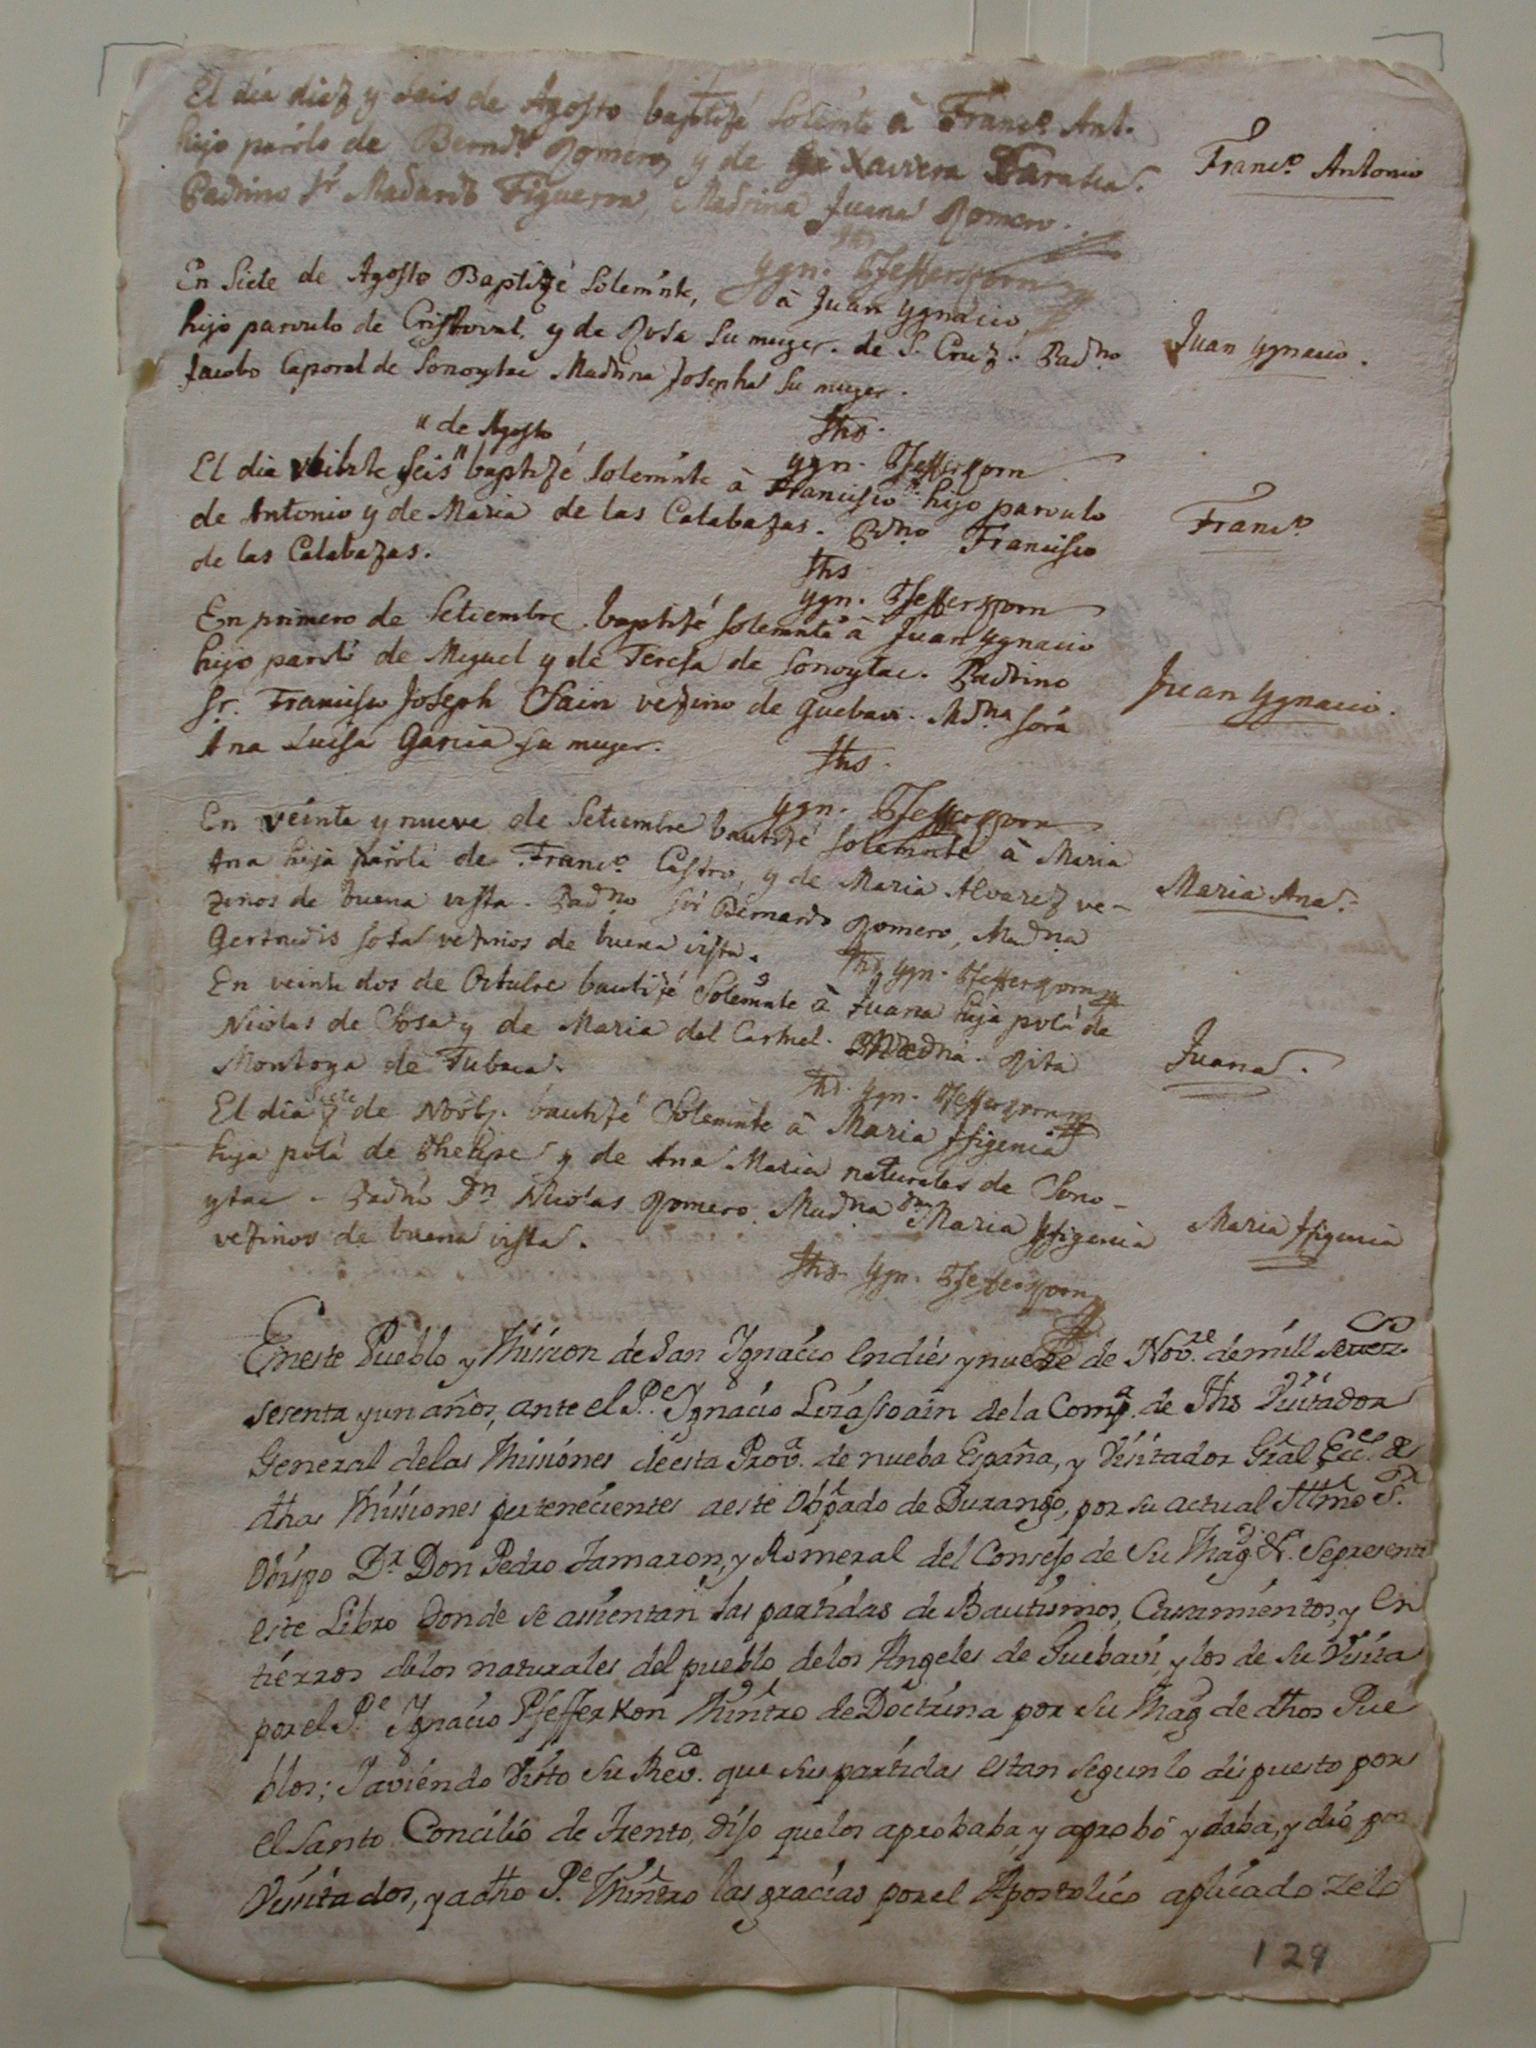 El dia diez y seis de Agosto baptizé solemte à Franco. Ant.
hijo parvlo de Berndo. Romero, y de Xaviera
Padrino sr. Madardo Figueroa, Madrina Juana Romero.
Franco. Antonio
Jhs
Ygn. Pfefferkorn
En siete de Agosto Baptizé solemnte, à Juan Ygnacio,
hijo parvulo de Cristoval, y de Rosa su muger. de S. Cruz. Padno
Jacobo Caporal de Sonoytac Madrina Josepha su muger.
Juan Ygnacio.
Jhs.
Ygn. Pfefferkorn
" de Agosto
El dia veinte seis " baptizé solemnte à Francisco hijo parvulo
de Antonio y de Maria de las Calabazas. Pdno Francisco
de las Calabazas.
Franco.
Jhs
Ygn. Pfefferkorn
En primero de Setiembre baptizé solemnte à Juan Ygnacio
hijo parvlo de Miguel y de Teresa de Sonoytac. Padrino
Sr. Francisco Joseph vezino de Guebavi. Mdna sora
Ana Luisa Garcia su muger.
Juan Ygnacio.
Jhs.
Ygn. Pfefferkorn
En veinte y nueve de Setiembre bautizé solemnte à Maria
Ana hija parvla de Franco. Castro, y de Maria Alvarez ve-
zinos de buena vista. Padno sor Bernardo Romero, Madna
Gertrudis Sosa vezinos de buena vista.
Maria Ana.
Jhs Ygn. Pfefferkorn
En veinte dos de Octubre bautizé solemnte à Juana hija pvla de
Nicolas de Sosa y de Maria del Carmel. Madna. Rita
Montoya de Tubaca.
Juana.
Jhs. Ygn. Pfefferkorn
siete
El dia 7 de Novbr. bautizé solemnte à Maria Ifigenia
hija pvla de Phelipe y de Ana Maria naturales de Sono-
ytac. Padno Dn Nicolas Romero. Madna Dna Maria Ifigenia
vezinos de buena vista.
Maria Ifigenia
Jhs. Ygn. Pfefferkorn
En este Pueblo y Mision de San Ygnacio en dies y nuebe de Nove. de mill setez.s
sesenta y un años, ante el Pe. Ygnacio Lizassoain de la Compa. de Jhs Visitador
General de las Misiones de esta Prova. de nueba España, y Visitador Gral Ecco. de
dhas Misiones pertenecientes a este Obpado de Durango, por su actual Illmo Sr.
Obispo Dr. Don Pedro Tamaron, y Romeral del Consejo de Su Magd. &. se presentò
este Libro donde se asientan las partidas de Bautismos, Casamientos, y En
tierros de los naturales del pueblo de los Angeles de Guebavi, y los de su Visita
por el Pe. Ygnacio Pfefferkon Mintro de Doctrina por su Magd de dhos Pue
blos; Y aviendo visto su Revd. que sus partidas estan segun lo dispuesto por
el Santo Concilio de Trento, dijo que los aprobaba, y aprobó y daba, y dió por
Visitados, y a dho Pe. Mintro las gracias por el Apostolico aplicado zelo
129